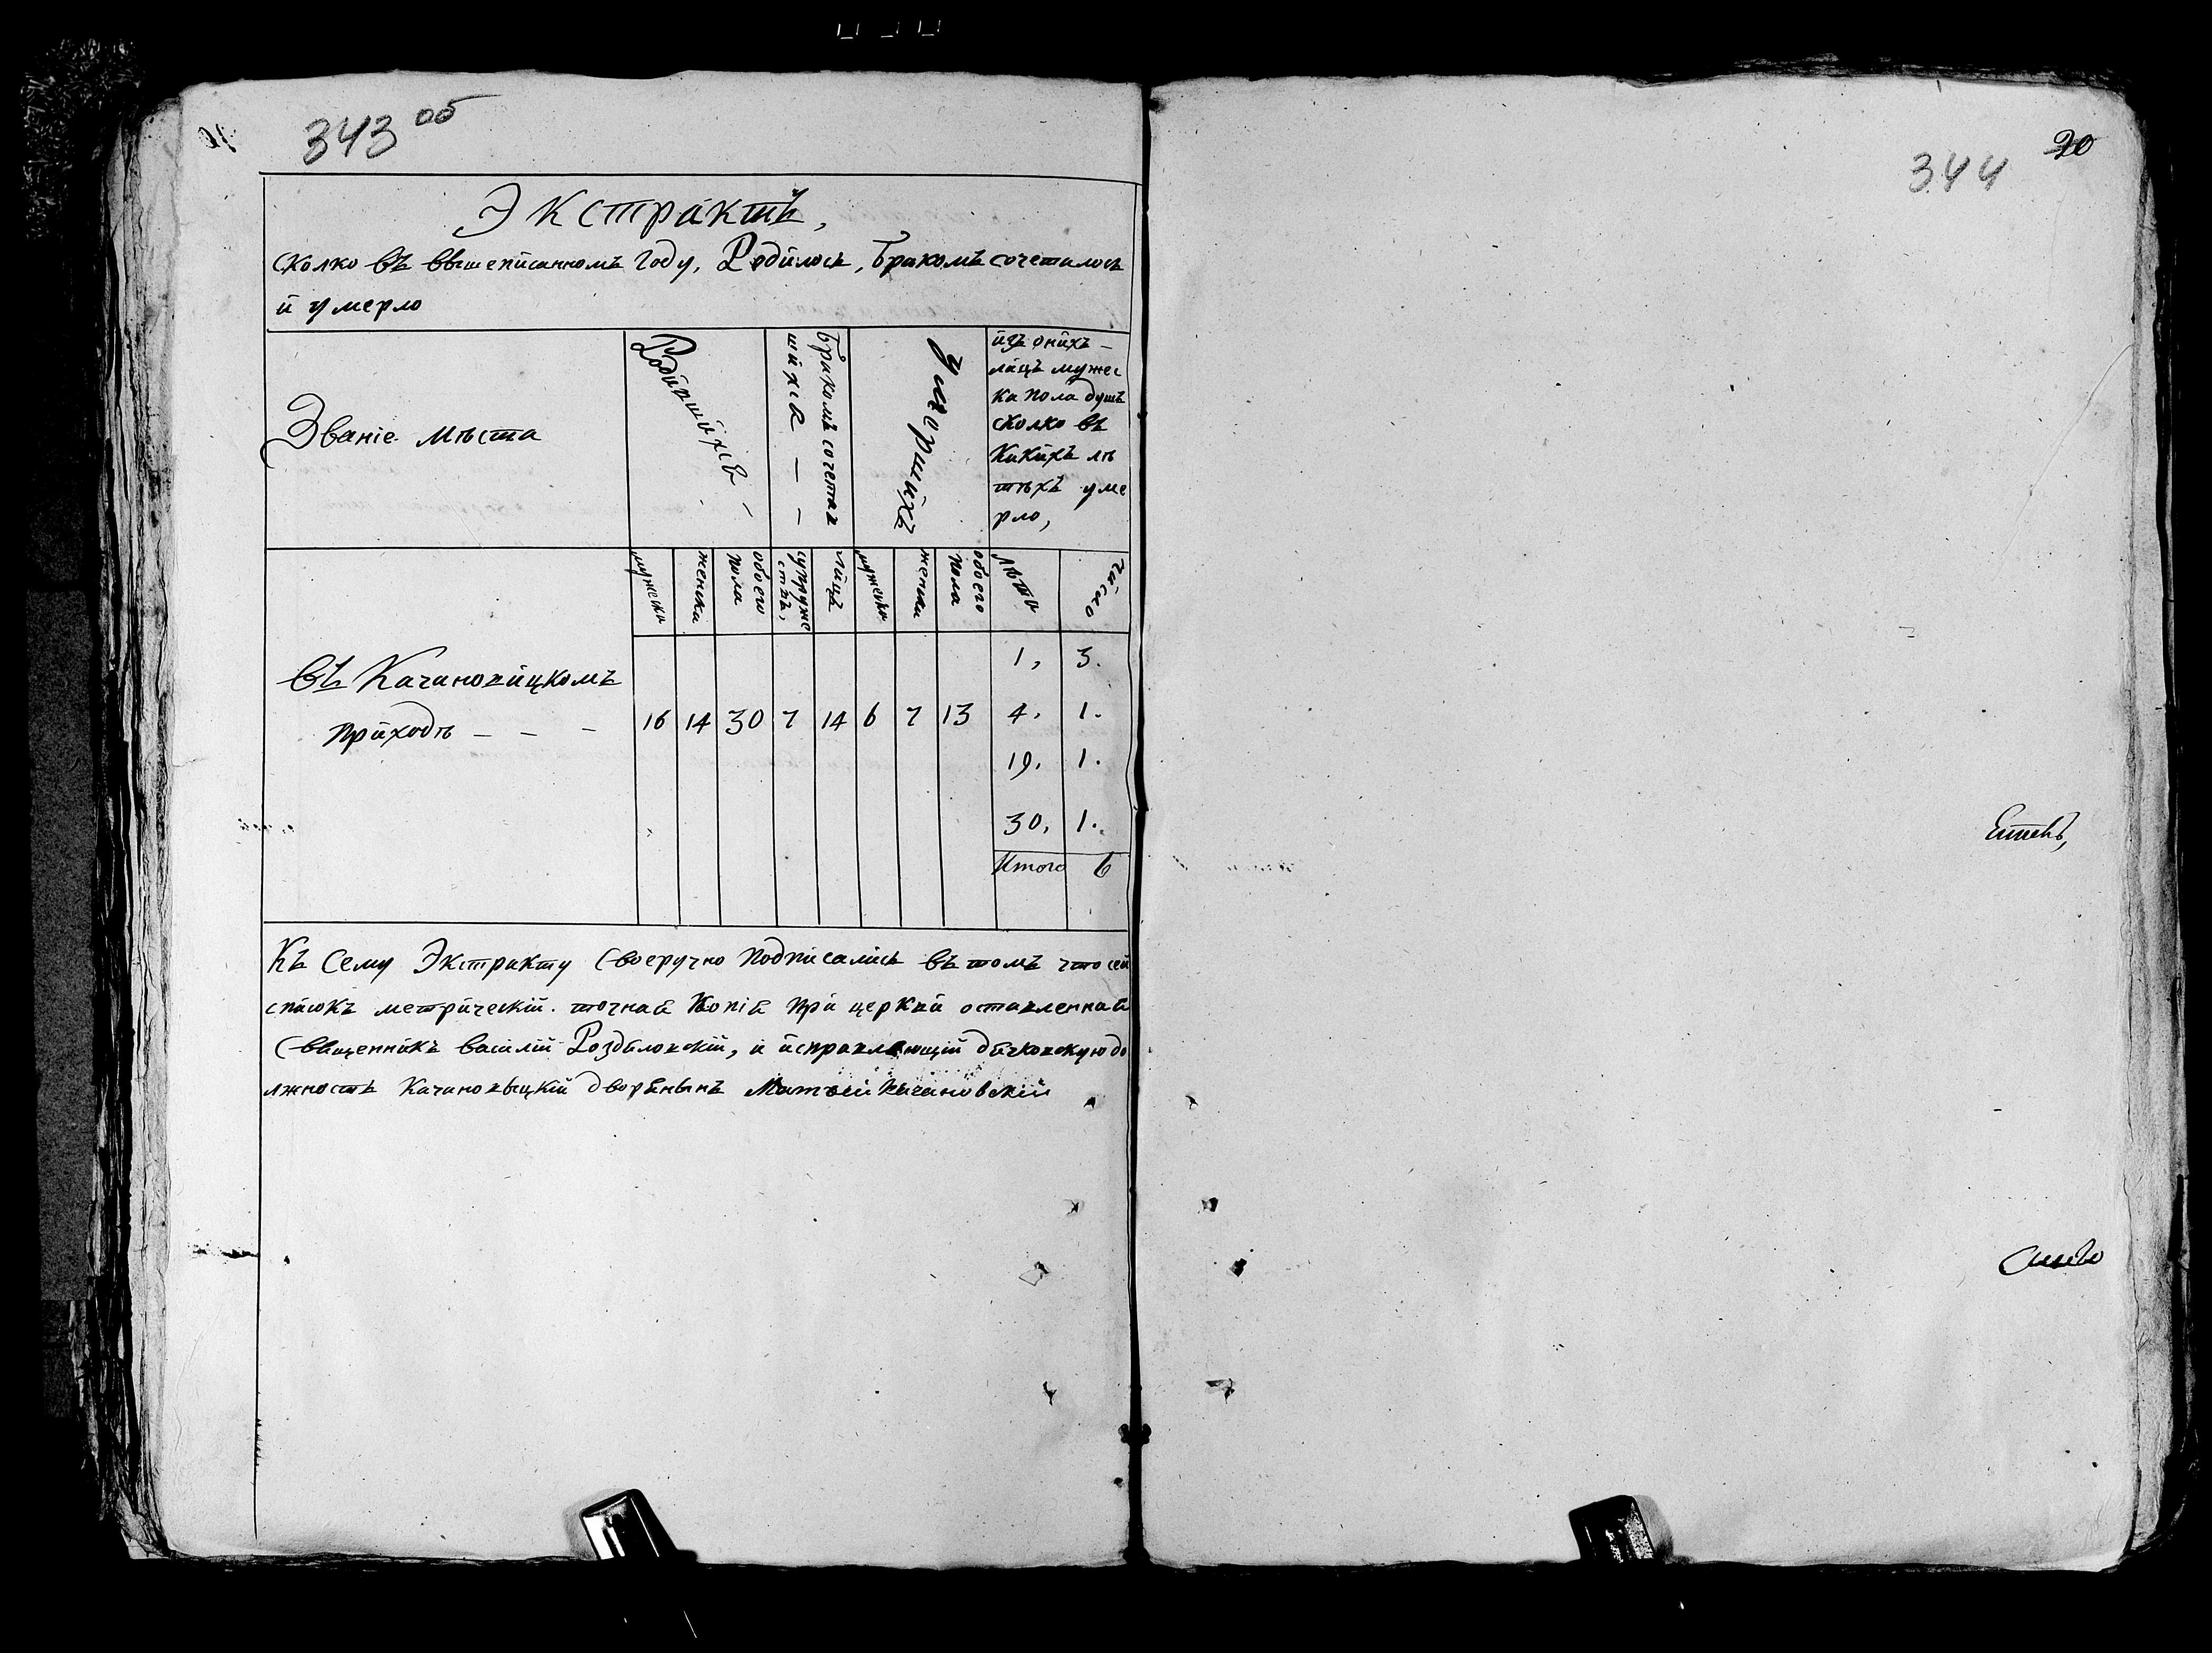 343 об
Экстрактъ,
сколко въ ввышеписанномъ году, Родилось, Бракомъ сочеталось
и умерло
Званіе мѣста
Родившихся –
Бракомъ сочетав
шихся – –
Умершихъ
изъ онихъ –
лицъ мужес
ка пола душъ
сколко въ
какихъ лѣ
тѣхъ уме
рло,
мужеска
женска
обоего
пола
супруже
ствъ,
лицъ
мужеска
женска
обоего
пола
лѣта
число
Въ Качановицкомъ
приходѣ – – –
16 14 30 7 14 6 7 13
1, 3.
4, 1.
19, 1.
30, 1.
Итого 6
Къ Сему Экстракту Своеручно подписались въ томъ что сей
списокъ метрическій. точная Копія при церкви оставленная
Священникъ василій Роздаловскій, и исправляющій дячковскую до
лжность Качановыцкій дворянынъ Матвей Качановскій
20
344